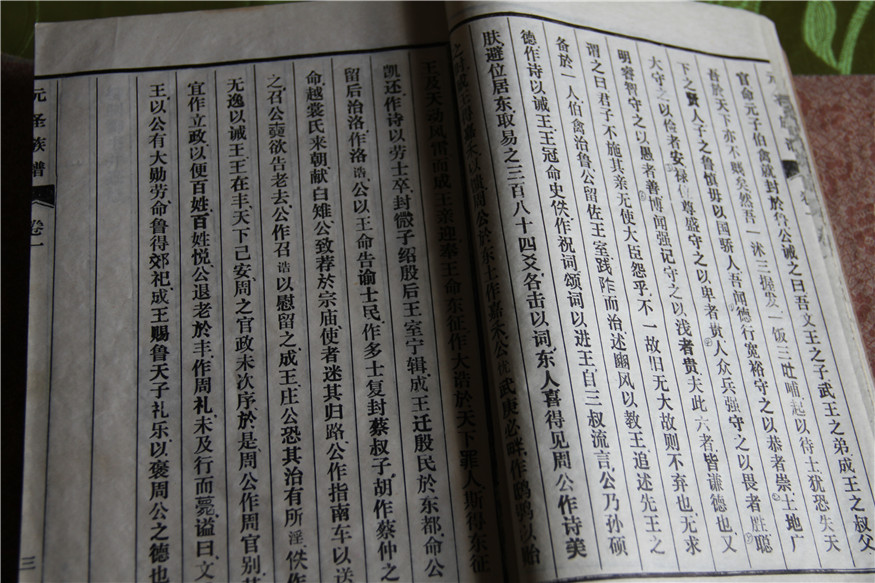 官命元子伯禽就封於鲁公诫之曰吾文王之子武王之弟成王之叔父
吾於天下亦不贱矣然吾一沐三握发一饭三吐哺起以待士犹恐失天
下之贤人子之鲁慎毋以国骄人吾闻德行宽裕守之以恭者崇土地广
大守之以俭者安禄位尊盛守之以卑者贵人众兵强守之以畏者胜聪
明睿智守之以愚者善博闻强记守之以浅者贵夫此六者皆谦德也又
谓之曰君子不施其亲无使大臣怨乎不一故旧无大故则不弃也无求
备於一人伯禽治鲁公留佐王室践阼而治述豳风以教王追述先王之
德作诗以诫王王冠命史佚作祝词颂词以进王自三叔流言公乃孙硕
肤避位居东取易之三百八十四爻各击以词东人喜得见周公作诗美
之 周公於东土作嘉禾公 武庚必畔作鸱鸮以贻
王及天动风雷而成王亲迎奉王命东征作大诰於天下罪人斯得东征
凯还作诗以劳士卒封微子绍殷后王室宁辑成王迁殷民於东都命公
留后治洛作洛诰公以王命告谕士民作多士复封蔡叔子胡作蔡仲之
命越裳氏来朝献白雉公致荐於宗庙使者迷其归路公作指南车以送
之召公奭欲告老去公作召诰以慰留之成王庄公恐其治有所淫佚作
无逸以诫王王在丰天下已安周之官政未次序於是周公作周官别其
宜作立政以便百姓百姓悦公退老於丰作周礼未及行而薨谥曰文
王以公有大勋劳命鲁得郊祀成王赐鲁天子礼乐以褒周公之德也
元圣族谱
卷一
三